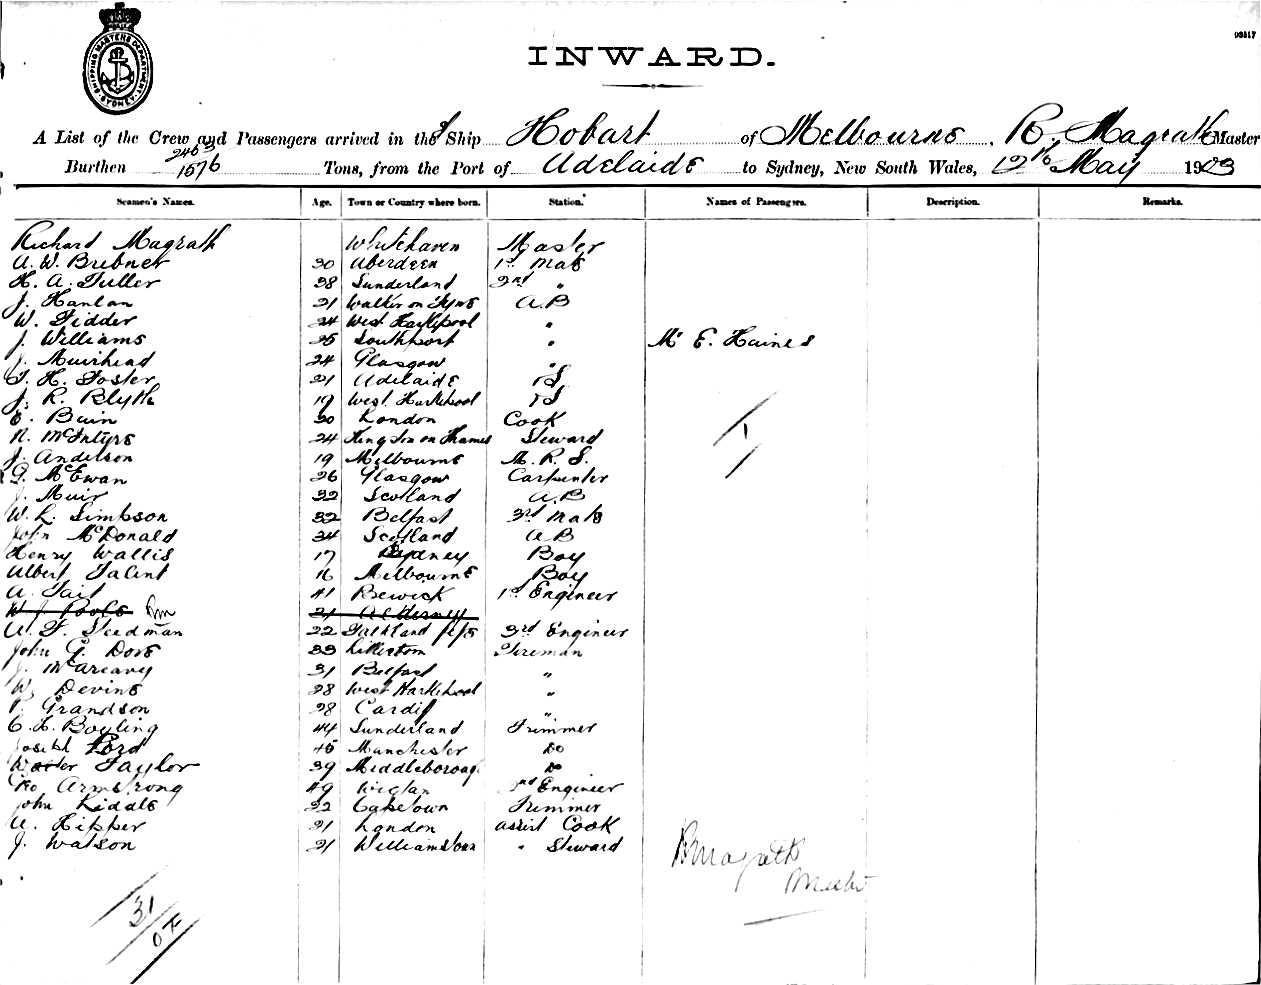 SHIPPING MASTERS DEPARTMENT SYDNEY
93517
INWARD.
A List of the Crew and Passengers arrived in the Ship Hobart of Melbourne, R. Magrath Master
Burthen 2463 1576 Tons, from the Port of Adelaide to Sydney, New South Wales, 12th May 1903
Seamen's Names. Age. Town or Country where born. Station. Names of Passengers. Description. Remarks.
Richard Magrath Whitehaven Master
A. W. Brebner 30 Aberdeen 1st Mate
H. A. Fuller 28 Sunderland 2nd "
J. Hanlan 21 Walker on Tyne A.B
W. Fidder 24 West Hartlepool "
J. Williams 25 Southport " Mr E. Haines
J. Muirhead 24 Glasgow "
T. H. Foster 21 Adelaide
J. R. Blyth 19 West Hartlepool
E. Bain 30 London Cook
N. McIntyre 24 Kingston on Thames Steward
J. Anderson 19 Melbourne M. R. S.
G. McEwan 26 Glasgow Carpenter
J. Muir 32 Scotland A.B
W. L. Simpson 32 Belfast 3rd Mate
John McDonald 34 Scotland A B
Henry Wallis 17 Sydney Boy
Albert Talent 16 Melbourne Boy
A. Tait 41 Berwick 1st Engineer
W J. Poole Rm 21 Alderney
W. F. Steedman 22 Falkland Fife 3rd Engineer
John G. Dove 33 Fireman
J. McAreavy 31 Belfast "
W. Devine 28 West Hartlepool "
P. Grandson 28 Cardiff "
C. H. Boyling 44 Sunderland Trimmer
Joseph Ford 45 Manchester Do
Walter Taylor 39 Middleborough Do
Geo Armstrong 49 Wigtan 2nd Engineer
John Liddle 32 Capetown Trimmer
A. Hipper 21 London assist Cook
J. Watson 21 Williamstown " Steward
R Magrath
Master
31/